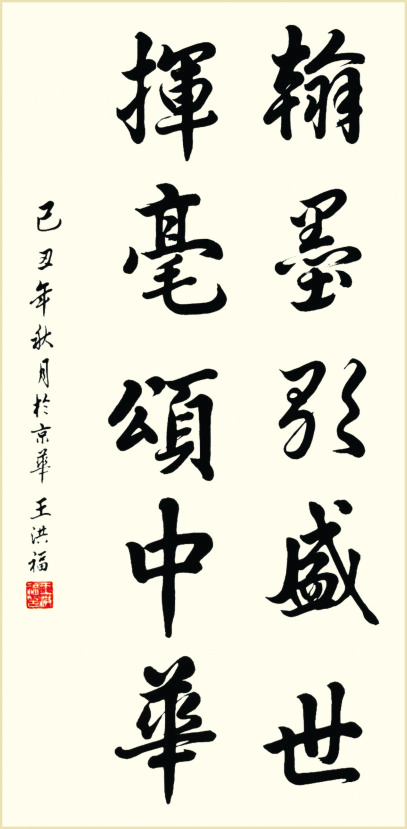 翰墨歌盛世
揮毫頌中華
己丑年秋月於京華 王洪福